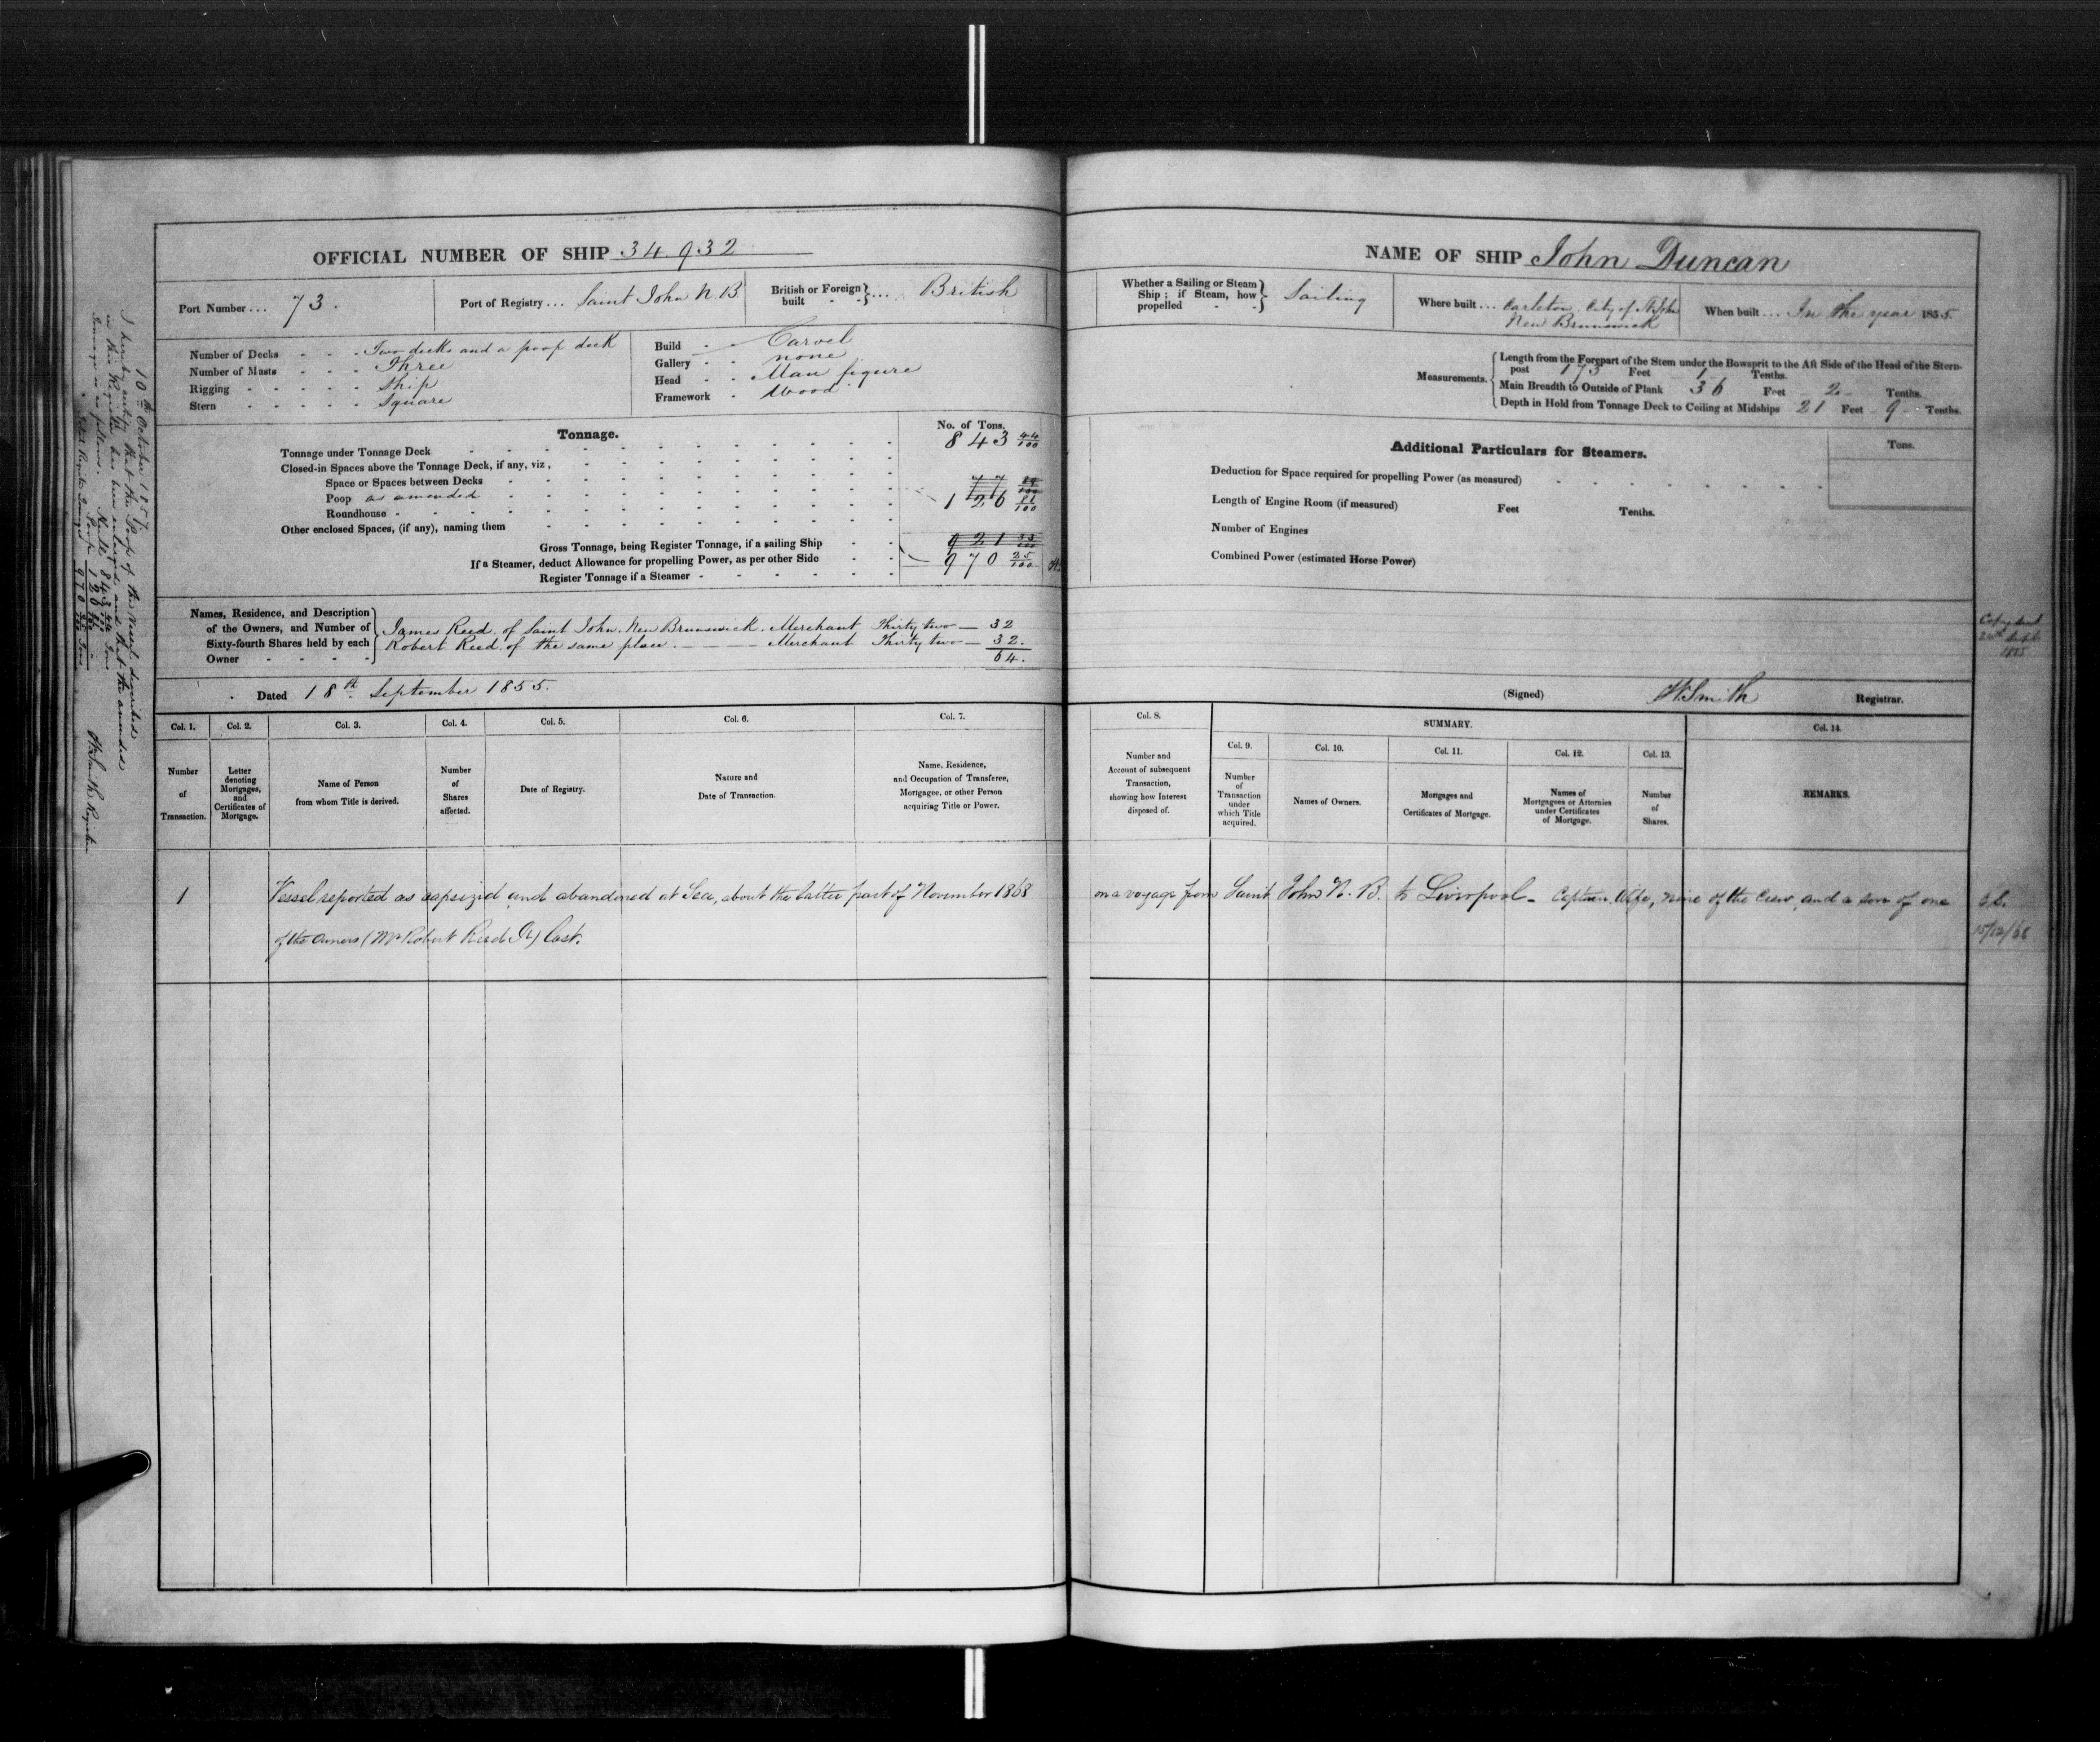 OFFICIAL NUMBER OF SHIP 34.932
Port Number ... 73.
Port of Registry ... Saint John N.B.
British or Foreign built - - } ... British
Number of Decks - - - Two decks and a poop deck
Number of Masts - - - Three
Rigging - - - - - Ship
Stern - - - - - Square
Build - - Carvel
Gallery - - none
Head - - Man figure
Framework - Wood
Tonnage.
No. of Tons.
Tonnage under Tonnage Deck 843 44/100
Closed-in Spaces above the Tonnage Deck, if any, viz,
Space or Spaces between Decks
Poop as amended 126 81/100
Roundhouse -
Other enclosed Spaces, (if any), naming them
Gross Tonnage, being Register Tonnage, if a sailing Ship
If a Steamer, deduct Allowance for propelling Power, as per other Side 970 25/100
Register Tonnage if a Steamer -
Names, Residence, and Description
of the Owners, and Number of
Sixty-fourth Shares held by each
Owner - - - -
James Reed, of Saint John, New Brunswick. Merchant Thirty two — 32
Robert Reed, of the same place. — — — Merchant Thirty two — 32.
64.
Dated 18th September 1855.
Col. 1. Col. 2. Col. 3. Col. 4. Col. 5. Col. 6. Col. 7.
Number of Transaction.
Letter denoting Mortgages, and Certificates of Mortgage.
Name of Person from whom Title is derived.
Number of Shares affected.
Date of Registry.
Nature and Date of Transaction.
Name, Residence, and Occupation of Transferee, Mortgagee, or other Person acquiring Title or Power.
1 Vessel reported as capsized and abandoned at Sea, about the latter part of November 1868
of the Owners (Mr Robert Reed Jr) lost.
10th October 1857.
I hereby certify that the Poop of the Vessel described
in this Register has been enlarged and that the amended
Tonnage is as follows.
843 44/100 Tons
Poop 126 81/100
Total Register Tonnage 970 25/100 Tons
H Smith Register
NAME OF SHIP John Duncan
Whether a Sailing or Steam
Ship ; if Steam, how
propelled - - } Sailing
Where built ... Carleton, City of St John
New Brunswick
When built ... In the year 1855.
Measurements.
Length from the Forepart of the Stem under the Bowsprit to the Aft Side of the Head of the Stern-
post 173 Feet 1 Tenths.
Main Breadth to Outside of Plank 36 Feet 2 Tenths.
Depth in Hold from Tonnage Deck to Ceiling at Midships 21 Feet 9 Tenths.
Additional Particulars for Steamers.
Tons.
Deduction for Space required for propelling Power (as measured)
Length of Engine Room (if measured) Feet Tenths.
Number of Engines
Combined Power (estimated Horse Power)
Copy sent
24th Sept
1855
(Signed) H Smith Registrar.
Col. 8.
SUMMARY.
Col. 14.
Col. 9. Col. 10. Col. 11. Col. 12. Col. 13.
Number and Account of subsequent Transaction, showing how Interest disposed of.
Number of Transaction under which Title acquired.
Names of Owners.
Mortgages and Certificates of Mortgage.
Names of Mortgagees or Attornies under Certificates of Mortgage.
Number of Shares.
REMARKS.
on a voyage from Saint John N. B. to Liverpool - Captain, Wife, nine of the Crew, and a son of one
15/12/68